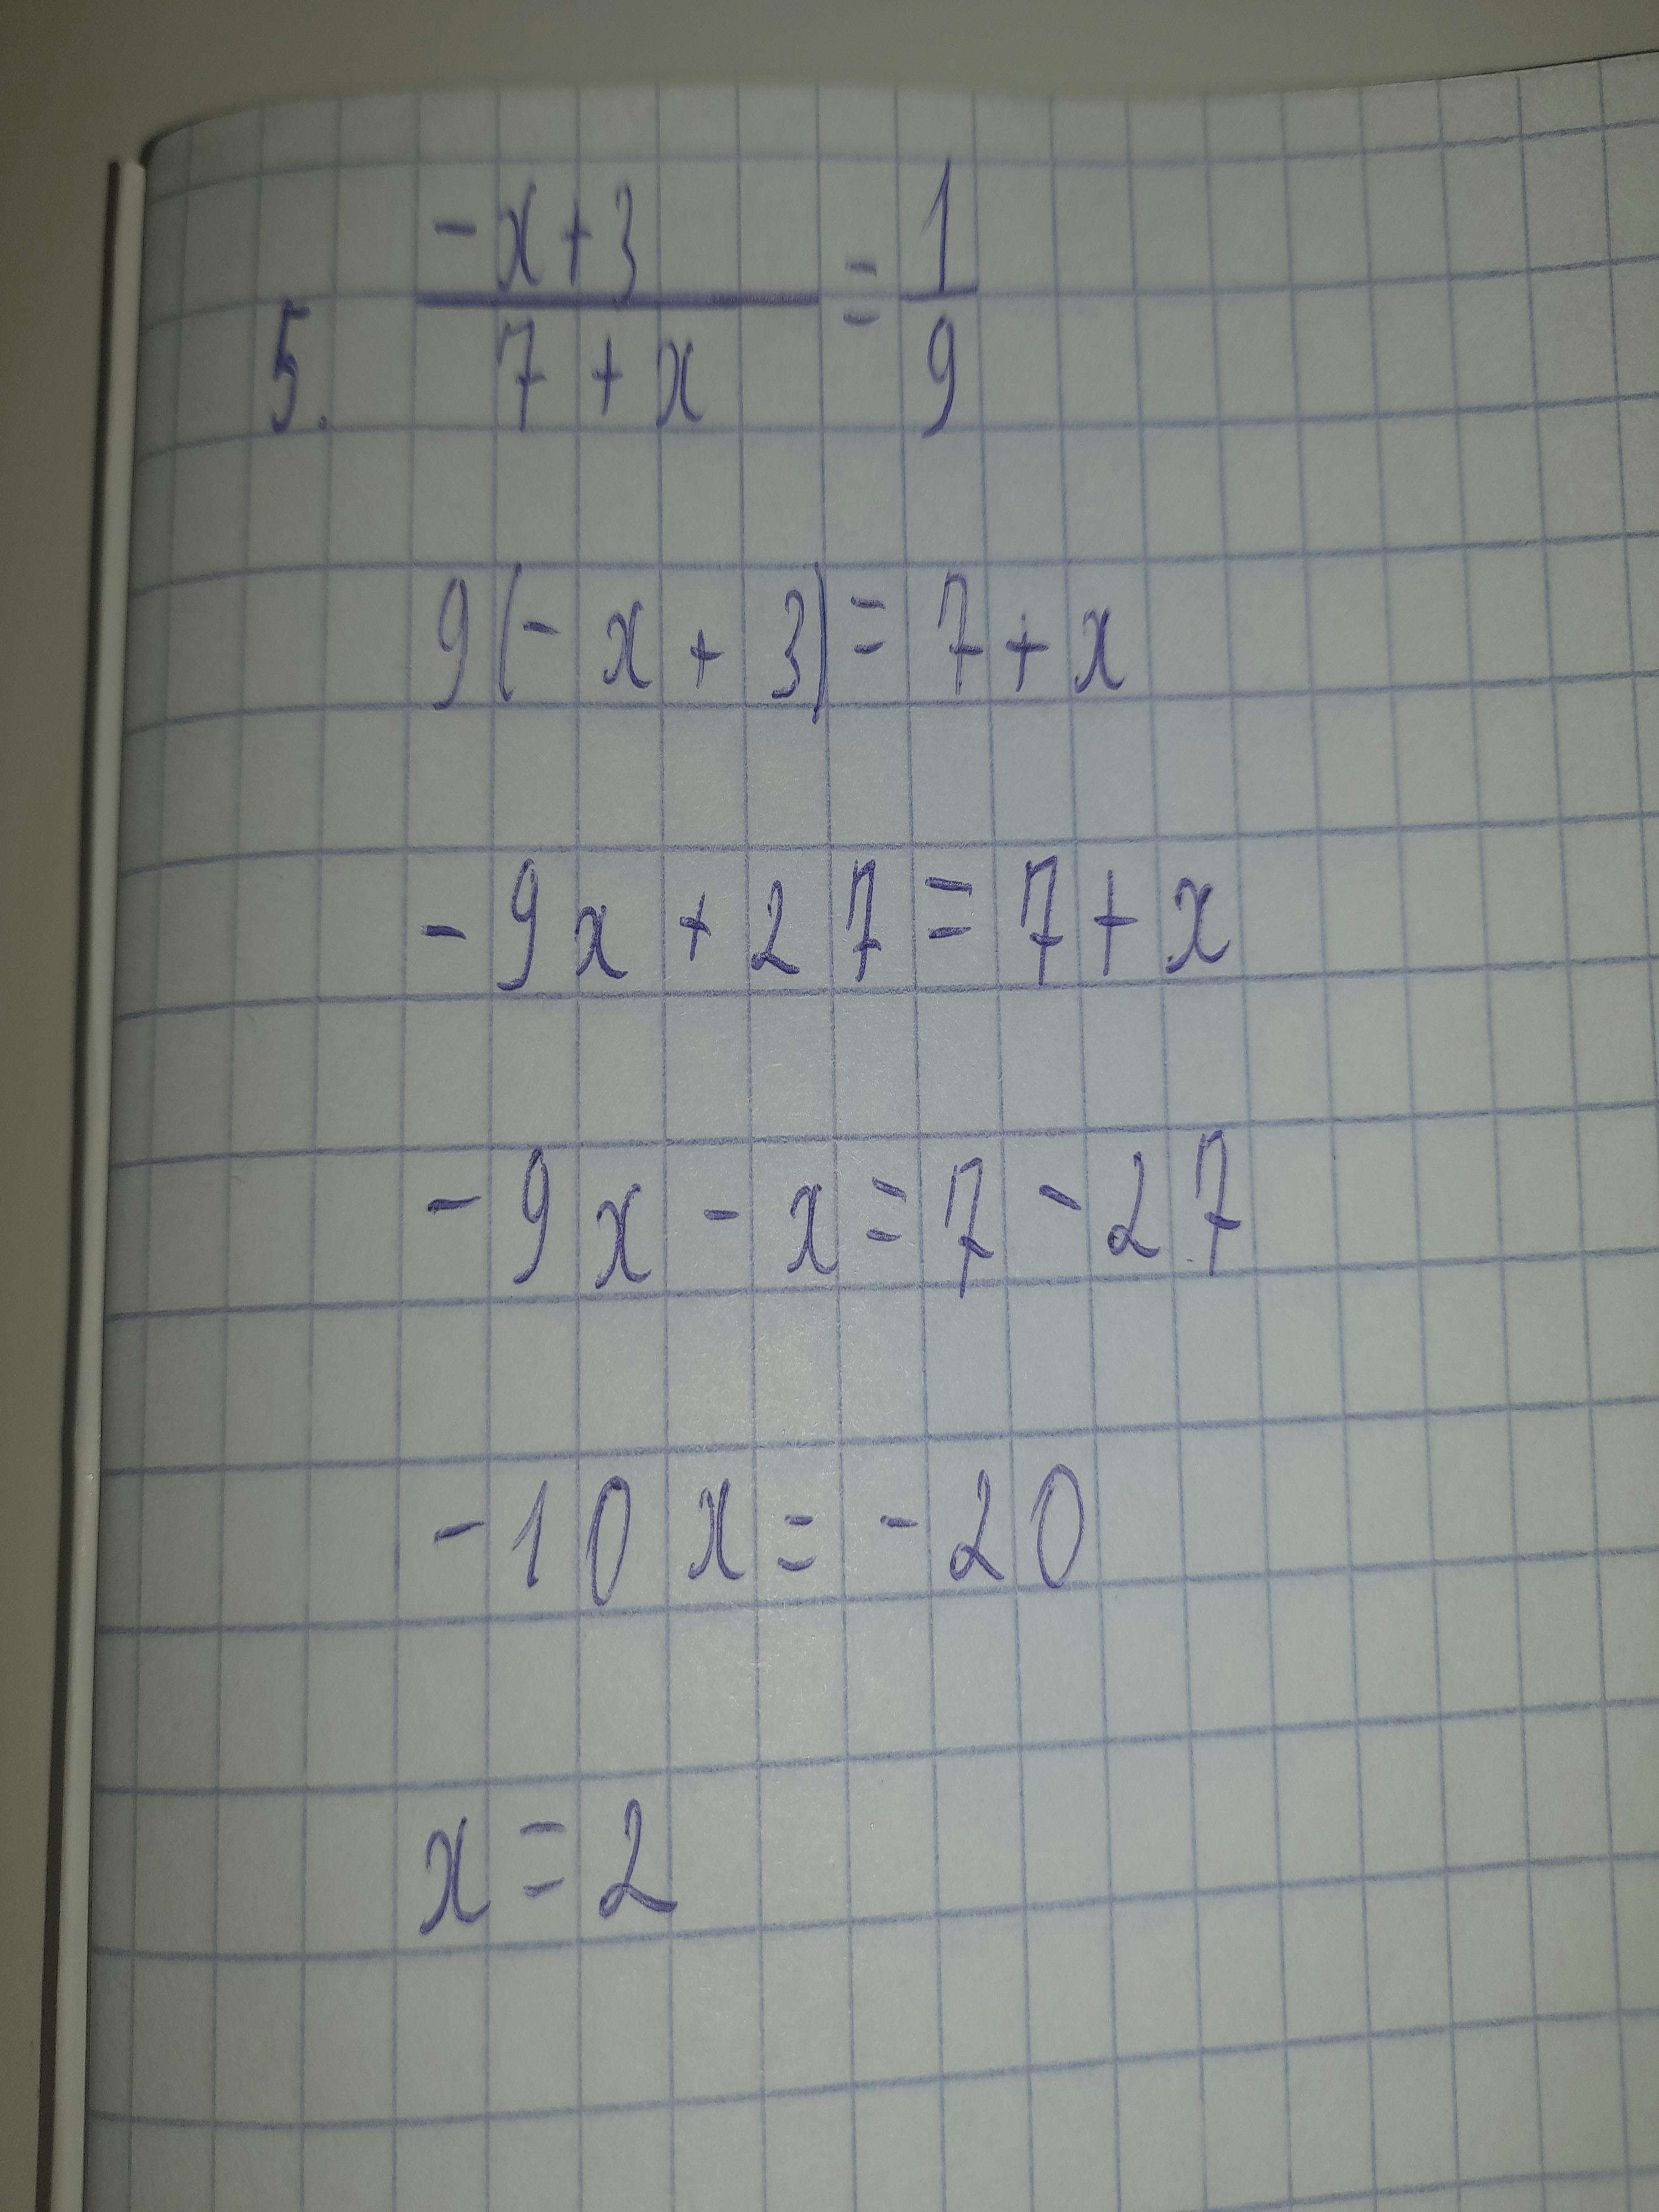 5. -x+3/7+x = 1/9
9(-x+3)=7+x
-9x+27=7+x
-9x-x=7-27
-10x=-20
x=2